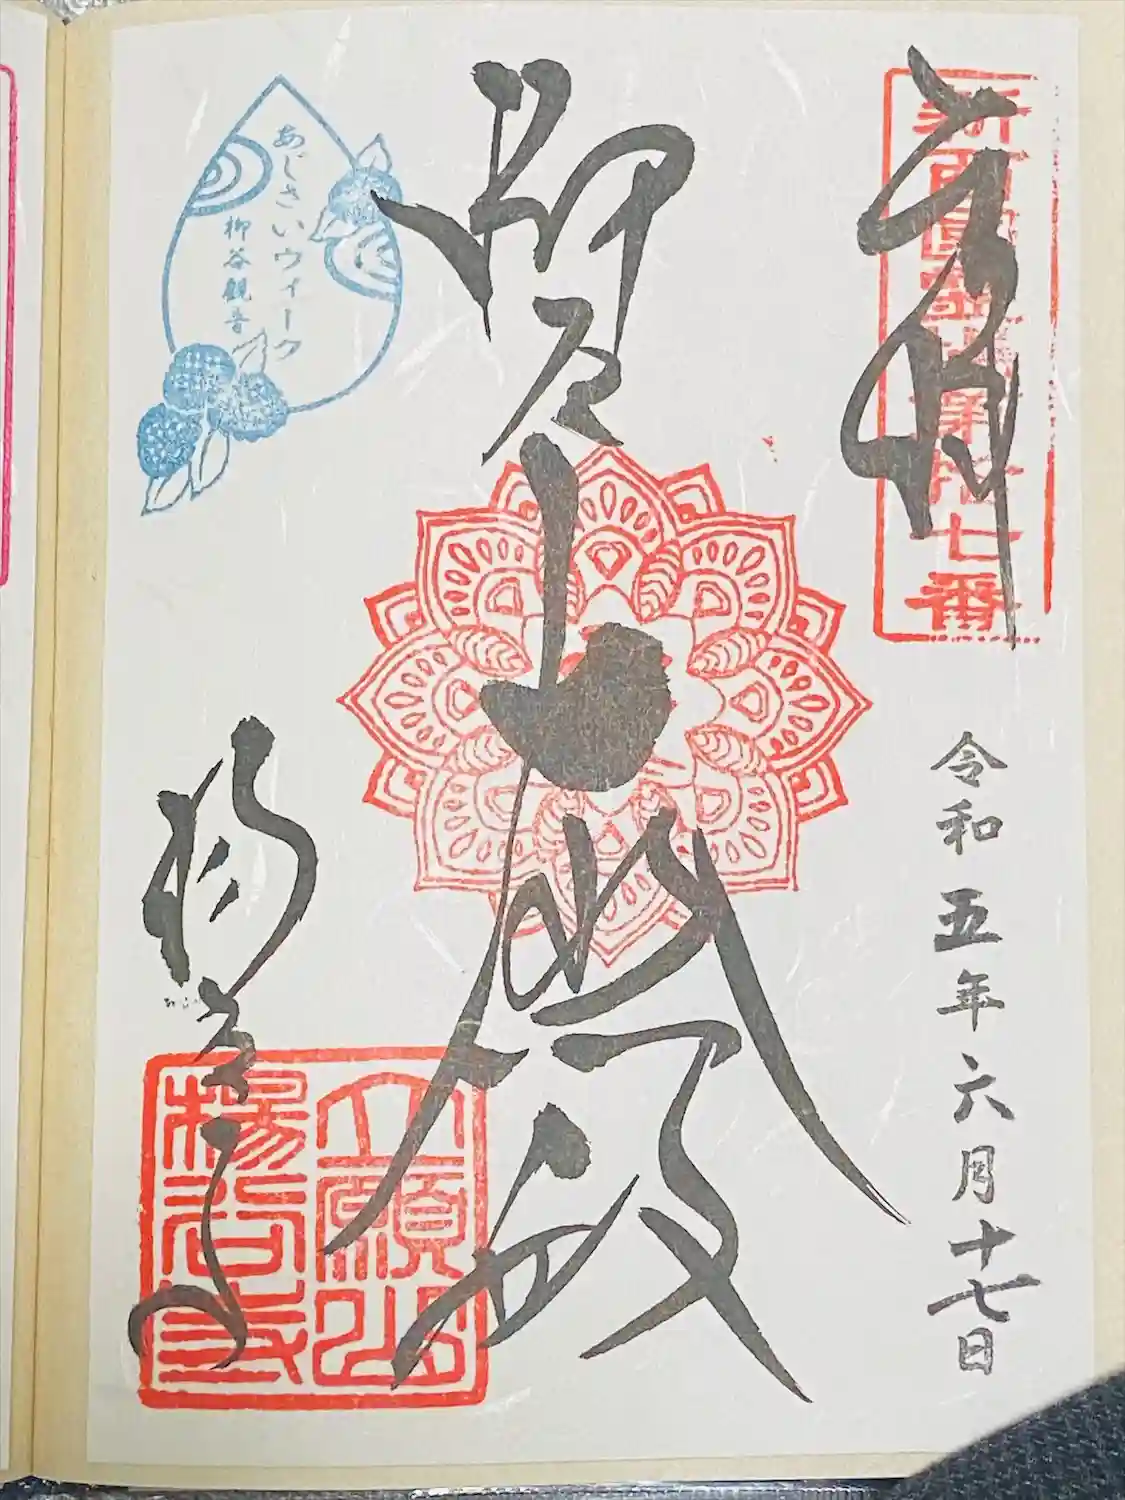 奉拝
新西国霊場第拾七番
令和五年六月十七日
大悲殿
あじさいウィーク
柳谷観音
楊谷寺
立願山
楊谷寺